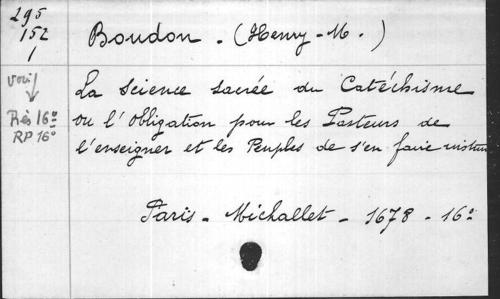 295
152
1
Boudon. (Henry-M.)
voir
La Science sacrée du Catéchisme
Rés 16º
ou l'obligation pour les Pasteurs de
RP 16º
l'enseigner et les Peuples de s'en faire instru
Paris - Michallet - 1678 - 16º